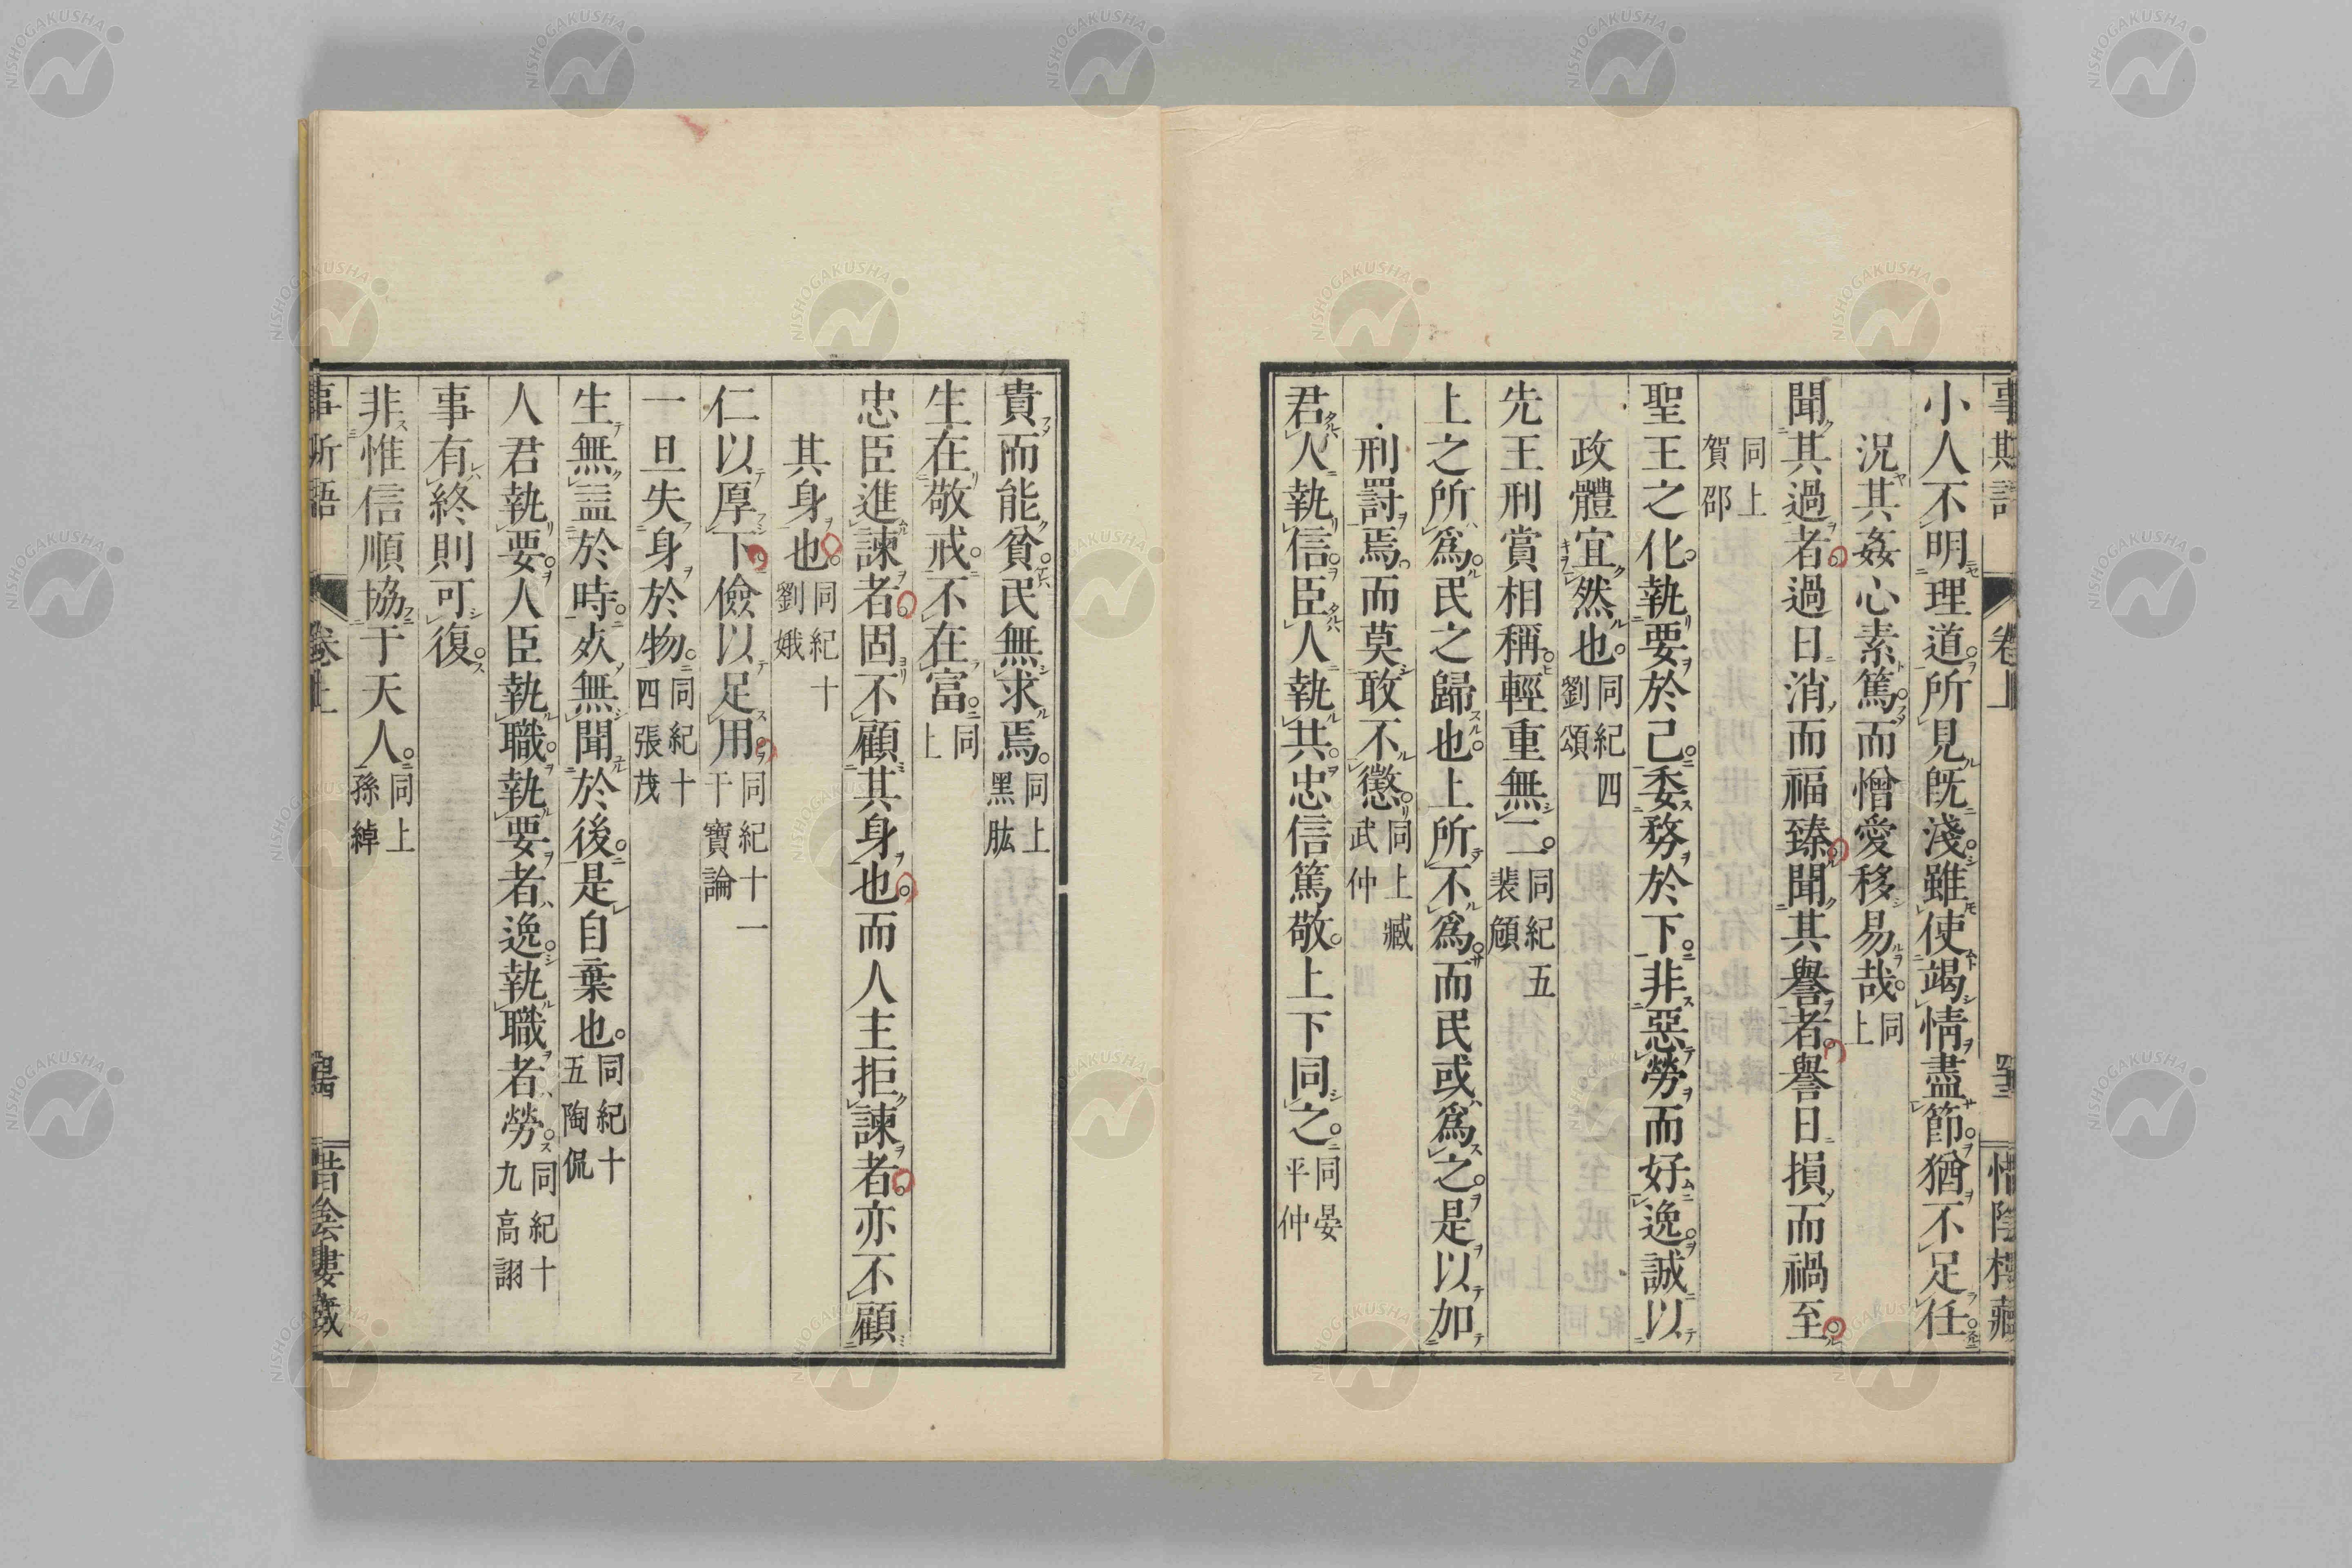 事斯語 卷上 惜陰樓藏
小人不明理道。所見既淺。雖使竭情盡節。猶不足任。
況其姦心素篤。而憎愛移易哉。同上
聞其過者。過日消而福臻。聞其譽者。譽日損而禍至。
同上賀邵
聖王之化。執要於己。委務於下。非惡勞而好逸。誠以
政體宜然也。同紀四劉頌
先王刑賞相稱。輕重無二。同紀五裴頠
上之所爲。民之歸也。上所不爲。而民或爲之。是以加
刑罰焉。而莫敢不懲。同上臧武仲
君人執信。臣人執共。忠信篤敬。上下同之。同晏平仲
貴而能貧。民無求焉。同上黑肱
生在敬戒。不在富。同上
忠臣進諫者。固不顧其身也。而人主拒諫者。亦不顧
其身也。同紀十劉娥
仁以厚下。儉以足用。同紀十一干寶論
一旦失身於物。同紀十四張茂
生無益於時。死無聞於後。是自棄也。同紀十五陶侃
人君執要。人臣執職。執要者逸。執職者勞。同紀十九高詡
事有終則可復。
非惟信順協于天人。同上孫綽
事斯語 卷上 惜陰樓藏
NISHOGAKUSHA